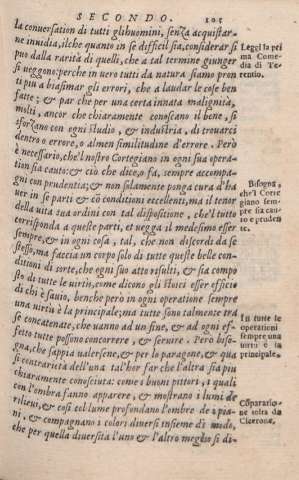 SECONDO. 105
la conuersation di tutti gli huomini, senza acquistar-
ne inuidia, il che quanto in se difficil sia, considerar si
puo dalla rarità di quelli, che a tal termine giunger
si ueggono: perche in uero tutti da natura siamo pron
ti piu a biasimar gli errori, che a laudar le cose ben
fatte; & par che per una certa innata malignita,
molti, ancor che chiaramente conoscano il bene, si
sforzano con ogni studio, & industria, di trouarci
dentro o errore, o almen similitudine d'errore. Però
è necessario, che'l nostro Cortegiano in ogni sua opera-
tion sia cauto: & ciò che dice, o fa, sempre accompa-
gni con prudentia; & non solamente ponga cura d'ha
uer in se parti & cō ditioni eccellenti, ma il tenor
della uita sua ordini con tal dispositione, che'l tutto
corrisponda a queste parti, et uegga il medesimo esser
sempre, & in ogni cosa, tal, che non discordi da se
stesso, ma faccia un corpo solo di tutte queste belle con-
ditioni di sorte, che ogni suo atto risulti, & sia compo
sto di tutte le uirtù, come dicono gli stoici esser officio
di chi è sauio, benche però in ogni operatione sempre
una uirtù è la principale; ma tutte sono talmente tra
se concatenate, che uanno ad un fine, & ad ogni ef-
fetto tutte possono concorrere, & seruire. Però biso-
gna, che sappia ualersene, & per lo paragone, & qua
si contrarietà dell'una tal'hor far che l'altra sia piu
chiaramente conosciuta: come i buoni pittori, i quali
con l'ombra fanno apparere, & mostrano i lumi de
rilieui, & cosi col lume profondano l'ombre de i pia-
ni, & compagnano i colori diuersi insieme di modo,
che per quella diuersità l'uno & l'altro meglio si di-
Leggi la pri
ma Come-
dia di Te-
rentio.
Bisogna,
che'l Corte
giano sem-
pre sia cau-
to e pruden
te.
In tutte le
operationi
sempre una
uirtù è la
principale.
Cōparatio-
ne tolta da
Cicerone.